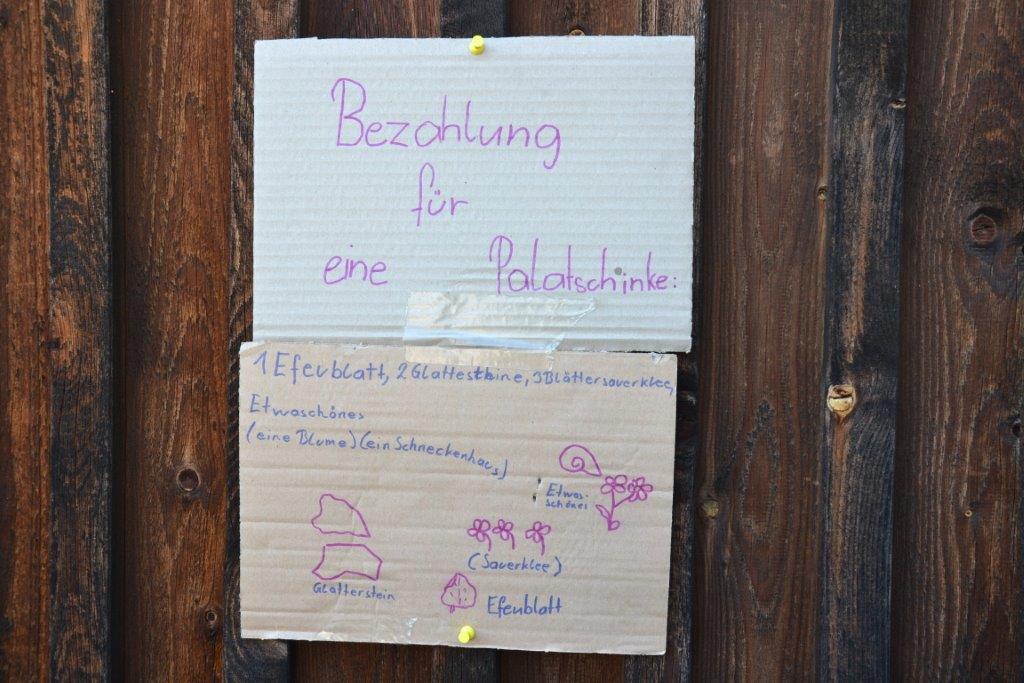 Bezahlung
für
eine Palatschinke:
1 Efeublatt, 2 Glattesteine, 3 Blättersauerklee,
Etwaschönes
(eine Blume) (ein Schneckenhaus)
Etwas-
schönes
(Sauerklee)
Glatterstein
Efeublatt